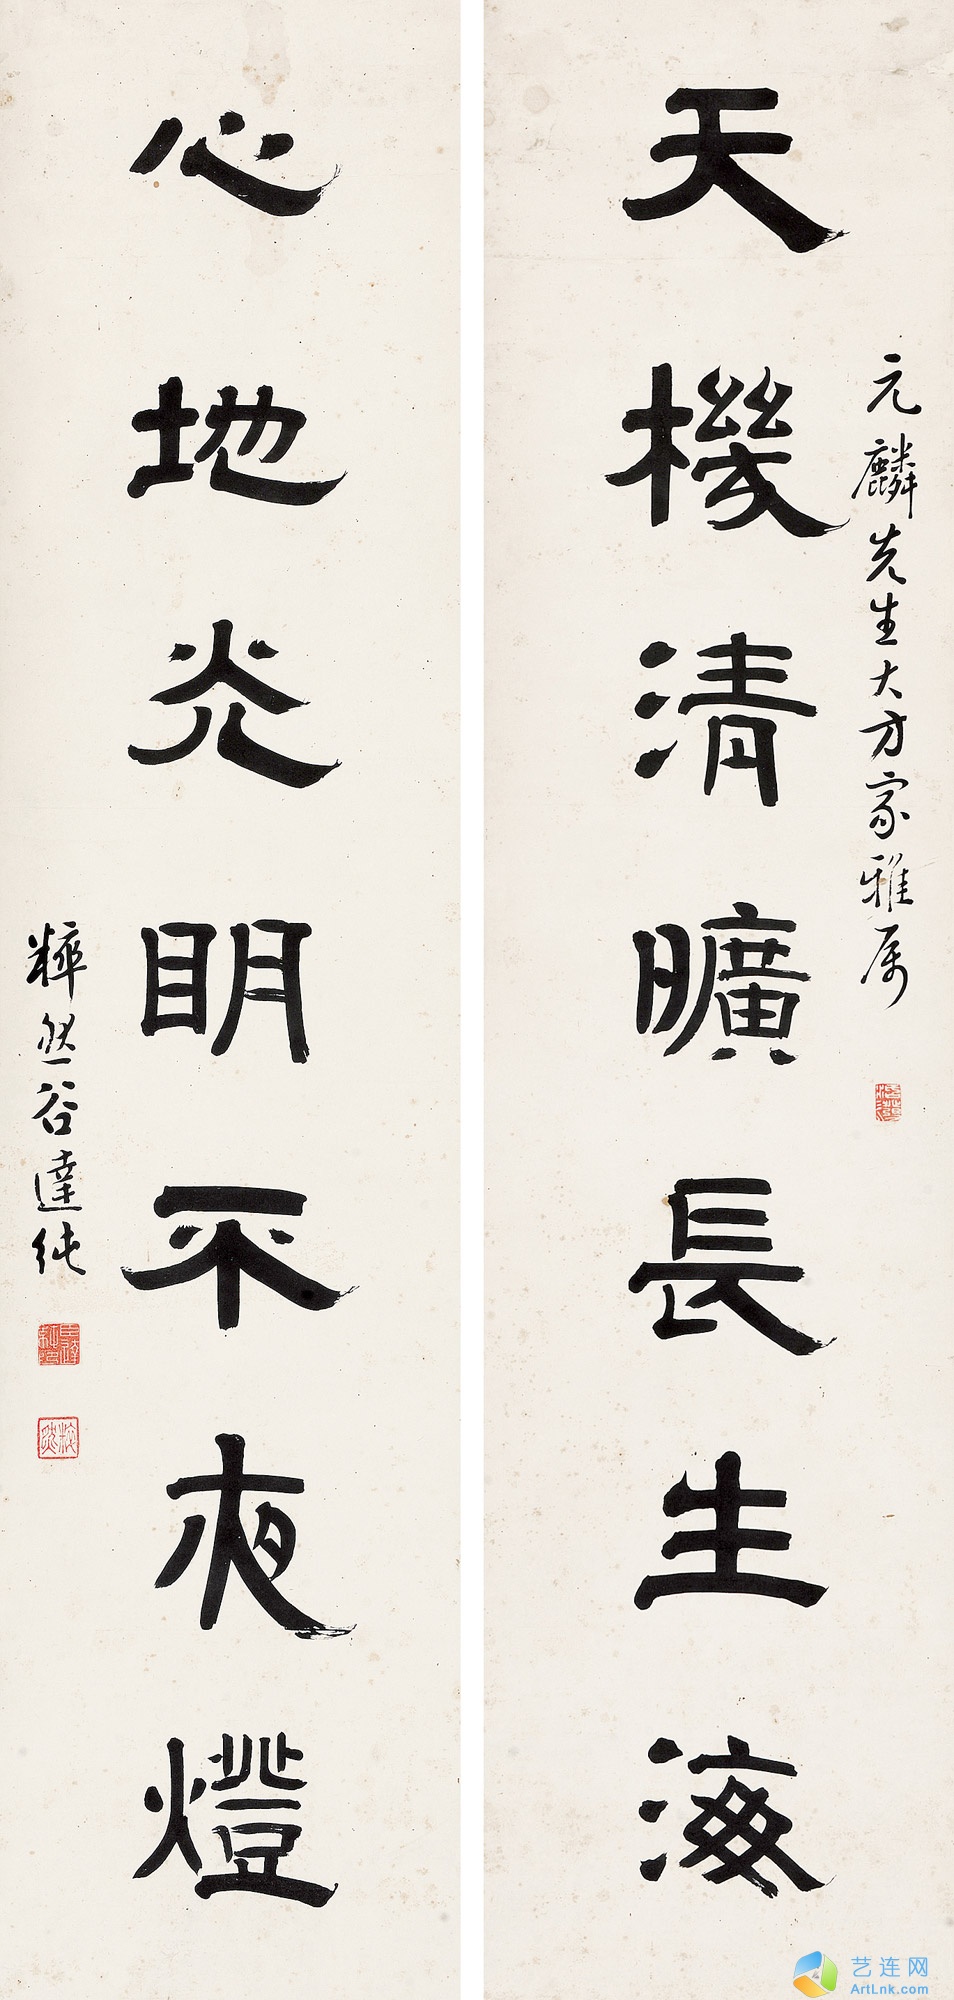 元麟先生大方家雅属
天機清曠長生海
心地光明不夜燈
粹然谷達純
艺连网
ArtLnk.com